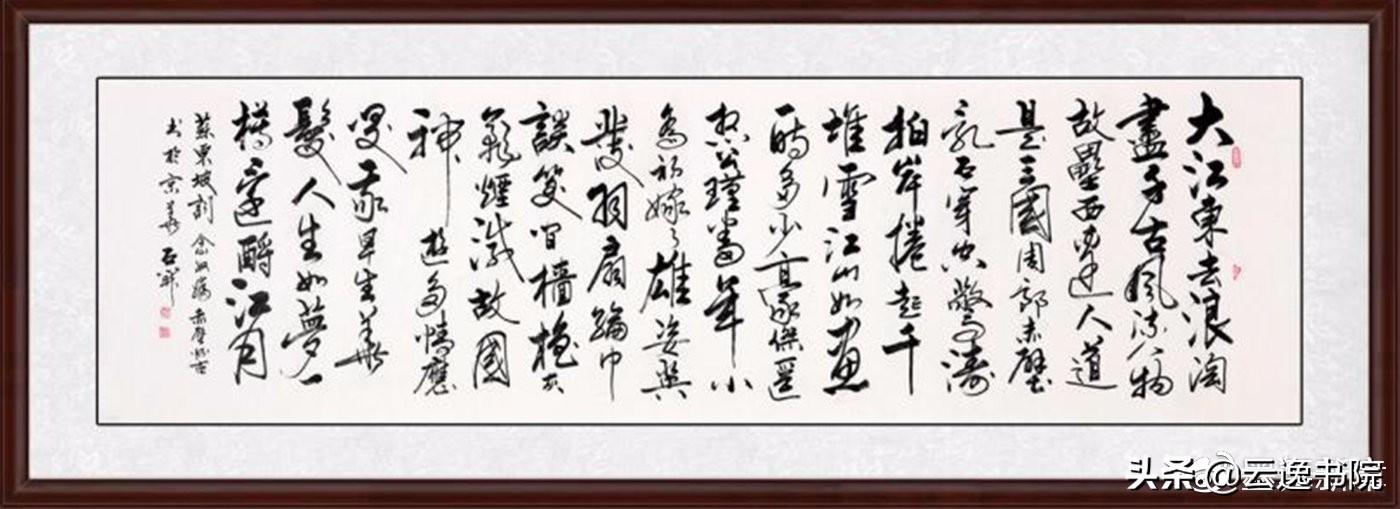 大江東去浪淘
盡千古風流人物
故壘西邊人道
是三國周郎赤壁
亂石穿空驚濤
拍岸捲起千
堆雪江山如畫
時多少豪傑遥
想公瑾當年小
喬初嫁了雄姿英
發羽扇綸巾
談笑間檣櫓灰
飛煙滅故國
神遊多情應
笑我早生華
髮人生如夢一
樽還酹江月
蘇東坡詞 念奴嬌 赤壁懷古
书於京華
头条@云逸书院